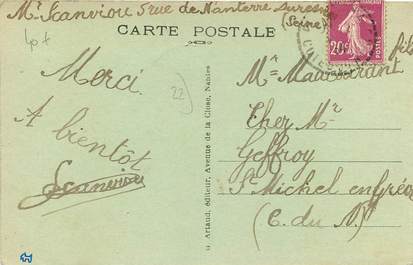 Mr Scanviou 5 rue de Nanterre Suresnes
(Seine)
CARTE POSTALE
20c
POSTES
22
Merci.
A bientôt
Scanviou
G. Artaud, éditeur, Avenue de la Close, Nantes
Mr Maucourant fils
Cher Mr
Geffroy
St Michel en Grève
(C. du N)